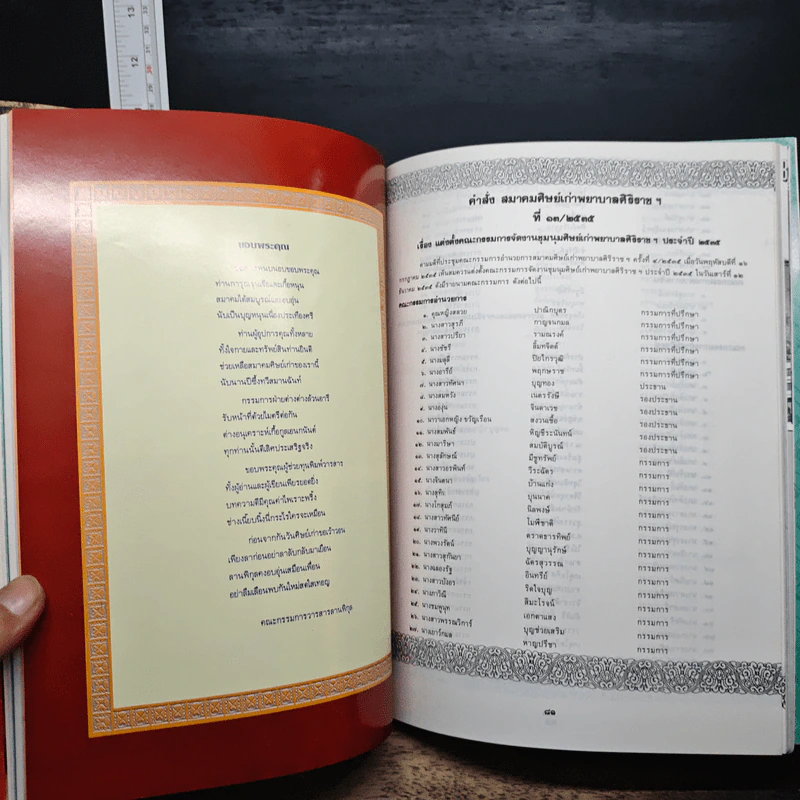 13
12
30
ขอบพระคุณ
ท่านการุณจุนเจือและเกื้อหนุน
สมาคมได้สมบูรณ์และอบอุ่น
นับเป็นบุญหนุนเนื่องประเทืองศรี
ท่านผู้อุปการคุณทั้งหลาย
ทั้งใจกายและทรัพย์สินท่านยินดี
ช่วยเหลือสมาคมศิษย์เก่าของเรานี้
นับนานปีซึ่งทวีสมานฉันท์
กรรมการฝ่ายต่างต่างล้วนอารี
รับหน้าที่ด้วยไมตรีต่อกัน
ต่างอนุเคราะห์เกื้อกูลเอนกนันต์
ทุกท่านนั้นดีเลิศประเสริฐจริง
ขอบพระคุณผู้ช่วยทุนพิมพ์วารสาร
ทั้งผู้อ่านและผู้เขียนเพียรยอดยิ่ง
บทความดีมีคุณค่าไพเราะพริ้ง
ช่างเนี๊ยบนิ้งนี่กระไรใครจะเหมือน
ก่อนจากกันวันศิษย์เก่าขอเว้าวอน
เพียงลาก่อนอย่าลาลับกลับมาเยือน
ลานพิกุลคงอบอุ่นเสมือนเพื่อน
อย่าลืมเลือนพบกันใหม่สดใสเทอญ
คณะกรรมการวารสารลานพิกุล
คำสั่ง สมาคมศิษย์เก่าพยาบาลศิริราช ฯ
ที่ ๑๓/๒๕๓๕
เรื่อง แต่งตั้งคณะกรรมการจัดงานชุมนุมศิษย์เก่าพยาบาลศิริราช ฯ ประจำปี ๒๕๓๕
ตามมติที่ประชุมคณะกรรมการอำนวยการสมาคมศิษย์เก่าพยาบาลศิริราช ฯ ครั้งที่ ๔/๒๕๓๕ เมื่อวันพฤหัสบดีที่ ๑๖
กรกฎาคม ๒๕๓๕ เห็นสมควรแต่งตั้งคณะกรรมการจัดงานชุมนุมศิษย์เก่าพยาบาลศิริราช ฯ ประจำปี ๒๕๓๕ ในวันเสาร์ที่ ๑๒
ธันวาคม ๒๕๓๕ ดังมีรายนามคณะกรรมการ ดังต่อไปนี้
คณะกรรมการอำนวยการ
๑. คุณหญิงสลวย ปาณิกบุตร กรรมการที่ปรึกษา
๒. นางสาวสุรภี กาญจนกมล กรรมการที่ปรึกษา
๓. นางสาวปรียา รามณรงค์ กรรมการที่ปรึกษา
๔. นางชัชรี ลิ้มทจิตต์ กรรมการที่ปรึกษา
๕. นางมลุลี ปิยไกรวุฒิ กรรมการที่ปรึกษา
๖. นางอารีย์ พฤกษราช กรรมการที่ปรึกษา
๗. นางสาวทัศนา บุญทอง ประธาน
๘. นางสมหวัง เนตรรังษี รองประธาน
๙. นางองุ่น จินดาเวช รองประธาน
๑๐. นาวาเอกหญิง ขวัญเรือน สงวนเชื้อ รองประธาน
๑๑. นางสมพันธ์ หิญชีระนันทน์ รองประธาน
๑๒. นางมาริษา สมบัติบูรณ์ รองประธาน
๑๓. นางสุลักษณ์ มีชูทรัพย์ กรรมการ
๑๔. นางสาวอรพินท์ วีระฉัตร กรรมการ
๑๕. นางจินตนา บ้านแก่ง กรรมการ
๑๖. นางสุทิน บุนนาค กรรมการ
๑๗. นางโกสุมภ์ นิลพงษ์ กรรมการ
๑๘. นางสาวทัศนีย์ ไมพิชาติ กรรมการ
๑๙. นางวาทินี ดราดธารทิพย์ กรรมการ
๒๐. นางพวงรัตน์ บุญญานุรักษ์ กรรมการ
๒๑. นางสาวสุกันยา ฉัตรสุวรรณ กรรมการ
๒๒. นางเฉลองรัฐ อินทรีย์ กรรมการ
๒๓. นางสาวบังอร ริดใจบุญ กรรมการ
๒๔. นางภาวิณี สิมะโรจน์ กรรมการ
๒๕. นางชมพูนุท เอกตาแสง กรรมการ
๒๖. นางสาวพรรณวิการ์ บุญช่วยเสริม กรรมการ
๒๗. นางเยาว์กมล หาญปรีชา กรรมการ
๘๑